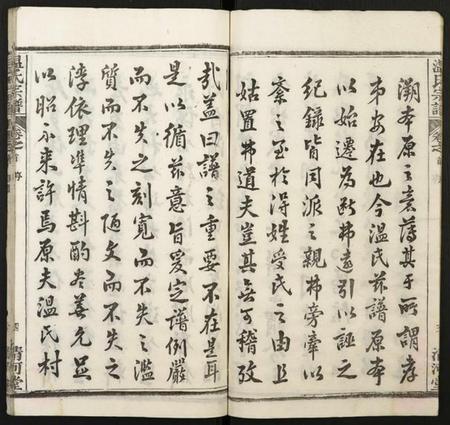 溯本原之意薄其于所謂孝
弟安在也今溫氏茲譜原本
以始遷為断弗遠引以誣之
紀錄皆同派之親弗旁牽以
紊之至於得姓受氏之由且
姑置弗道夫豈其無可稽攷
哉蓋曰譜之重要不在是耳
是以循茲意旨爰定譜例嚴
而不失之刻寬而不失之濫
質而不失之陋文而不失之
浮依理準情斟酌尽善允足
以昭示来許焉原夫溫氏村
温氏宗譜
卷之首
序
清河堂
温氏宗譜
卷之首
清河堂